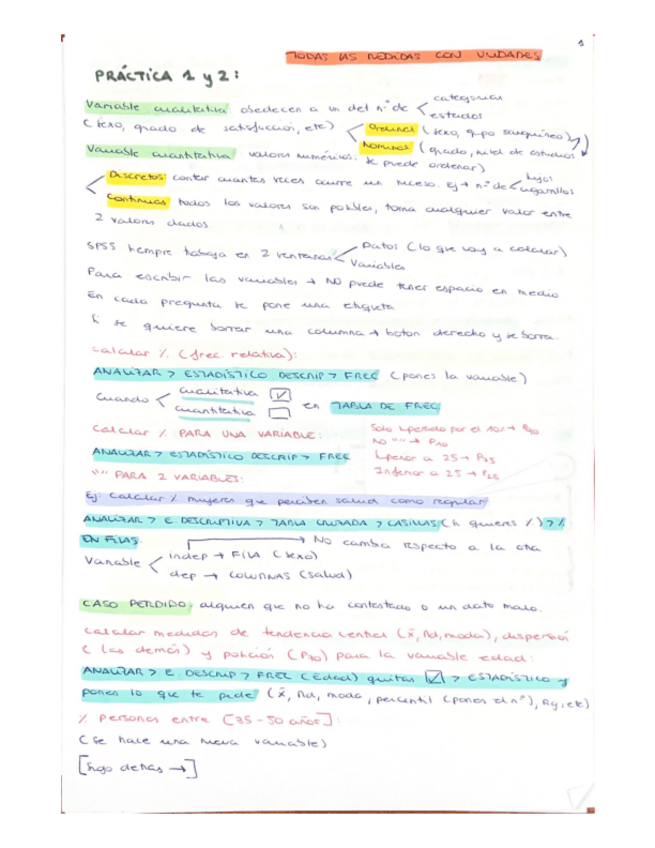 1
TODAS LAS MEDIDAS CON UNIDADES
PRÁCTICA 1 y 2:
Variable cualitativa: obedecen a un det nº de < categorías
estados
(sexo, grado de satisfacción, etc) < Ordinal (sexo, grupo sanguíneo)
Nominal (grado, nivel de estudios
Variable cuantitativa: valores numéricos. Se puede ordenar)
Discretos: contar cuantas veces ocurre un suceso. Ej → nº de < hijos
cigarrillos
Continuas todos los valores son posibles, toma cualquier valor entre
2 valores dados
SPSS siempre trabaja en 2 ventanas < Datos (lo que voy a colocar)
Variables
Para escribir las variables → NO puede tener espacio en medio
En cada pregunta se pone una etiqueta
Si se quiere borrar una columna → boton derecho y se borra.
Calcular % (frec. relativa):
ANALIZAR > ESTADÍSTICO DESCRIP > FREC (pones la variable)
Cuando < cualitativa ☑
cuantitativa ☐ en TABLA DE FREC
Calcular % PARA UNA VARIABLE:
ANALIZAR > ESTADÍSTICO DESCRIP > FREC
Solo superado por el 10% → P90
NO "" → P10
Superior a 25 → P75
Inferior a 25 → P25
"" PARA 2 VARIABLES:
Ej: Calcular % mujeres que perciben salud como regular
ANALIZAR > E. DESCRIPTIVA > TABLA CRUZADA > CASILLAS (si quieres %) > %
EN FILAS.
→ No cambia respecto a la otra
Variable < indep → FILA (sexo)
dep → COLUMNAS (salud)
CASO PERDIDO: alguien que no ha contestado o un dato malo.
Calcular medidas de tendencia central (x̄, Md, moda), dispersión
(las demás) y posición (P70) para la variable edad:
ANALIZAR > E. DESCRIP > FREC (Edad) quitas ☑ > ESTADÍSTICO y
pones lo que te pide (x̄, Md, moda, percentil (pones el nº), Rq, etc)
% personas entre [35-50 años]:
(se hace una nueva variable)
[Sigo detrás →]